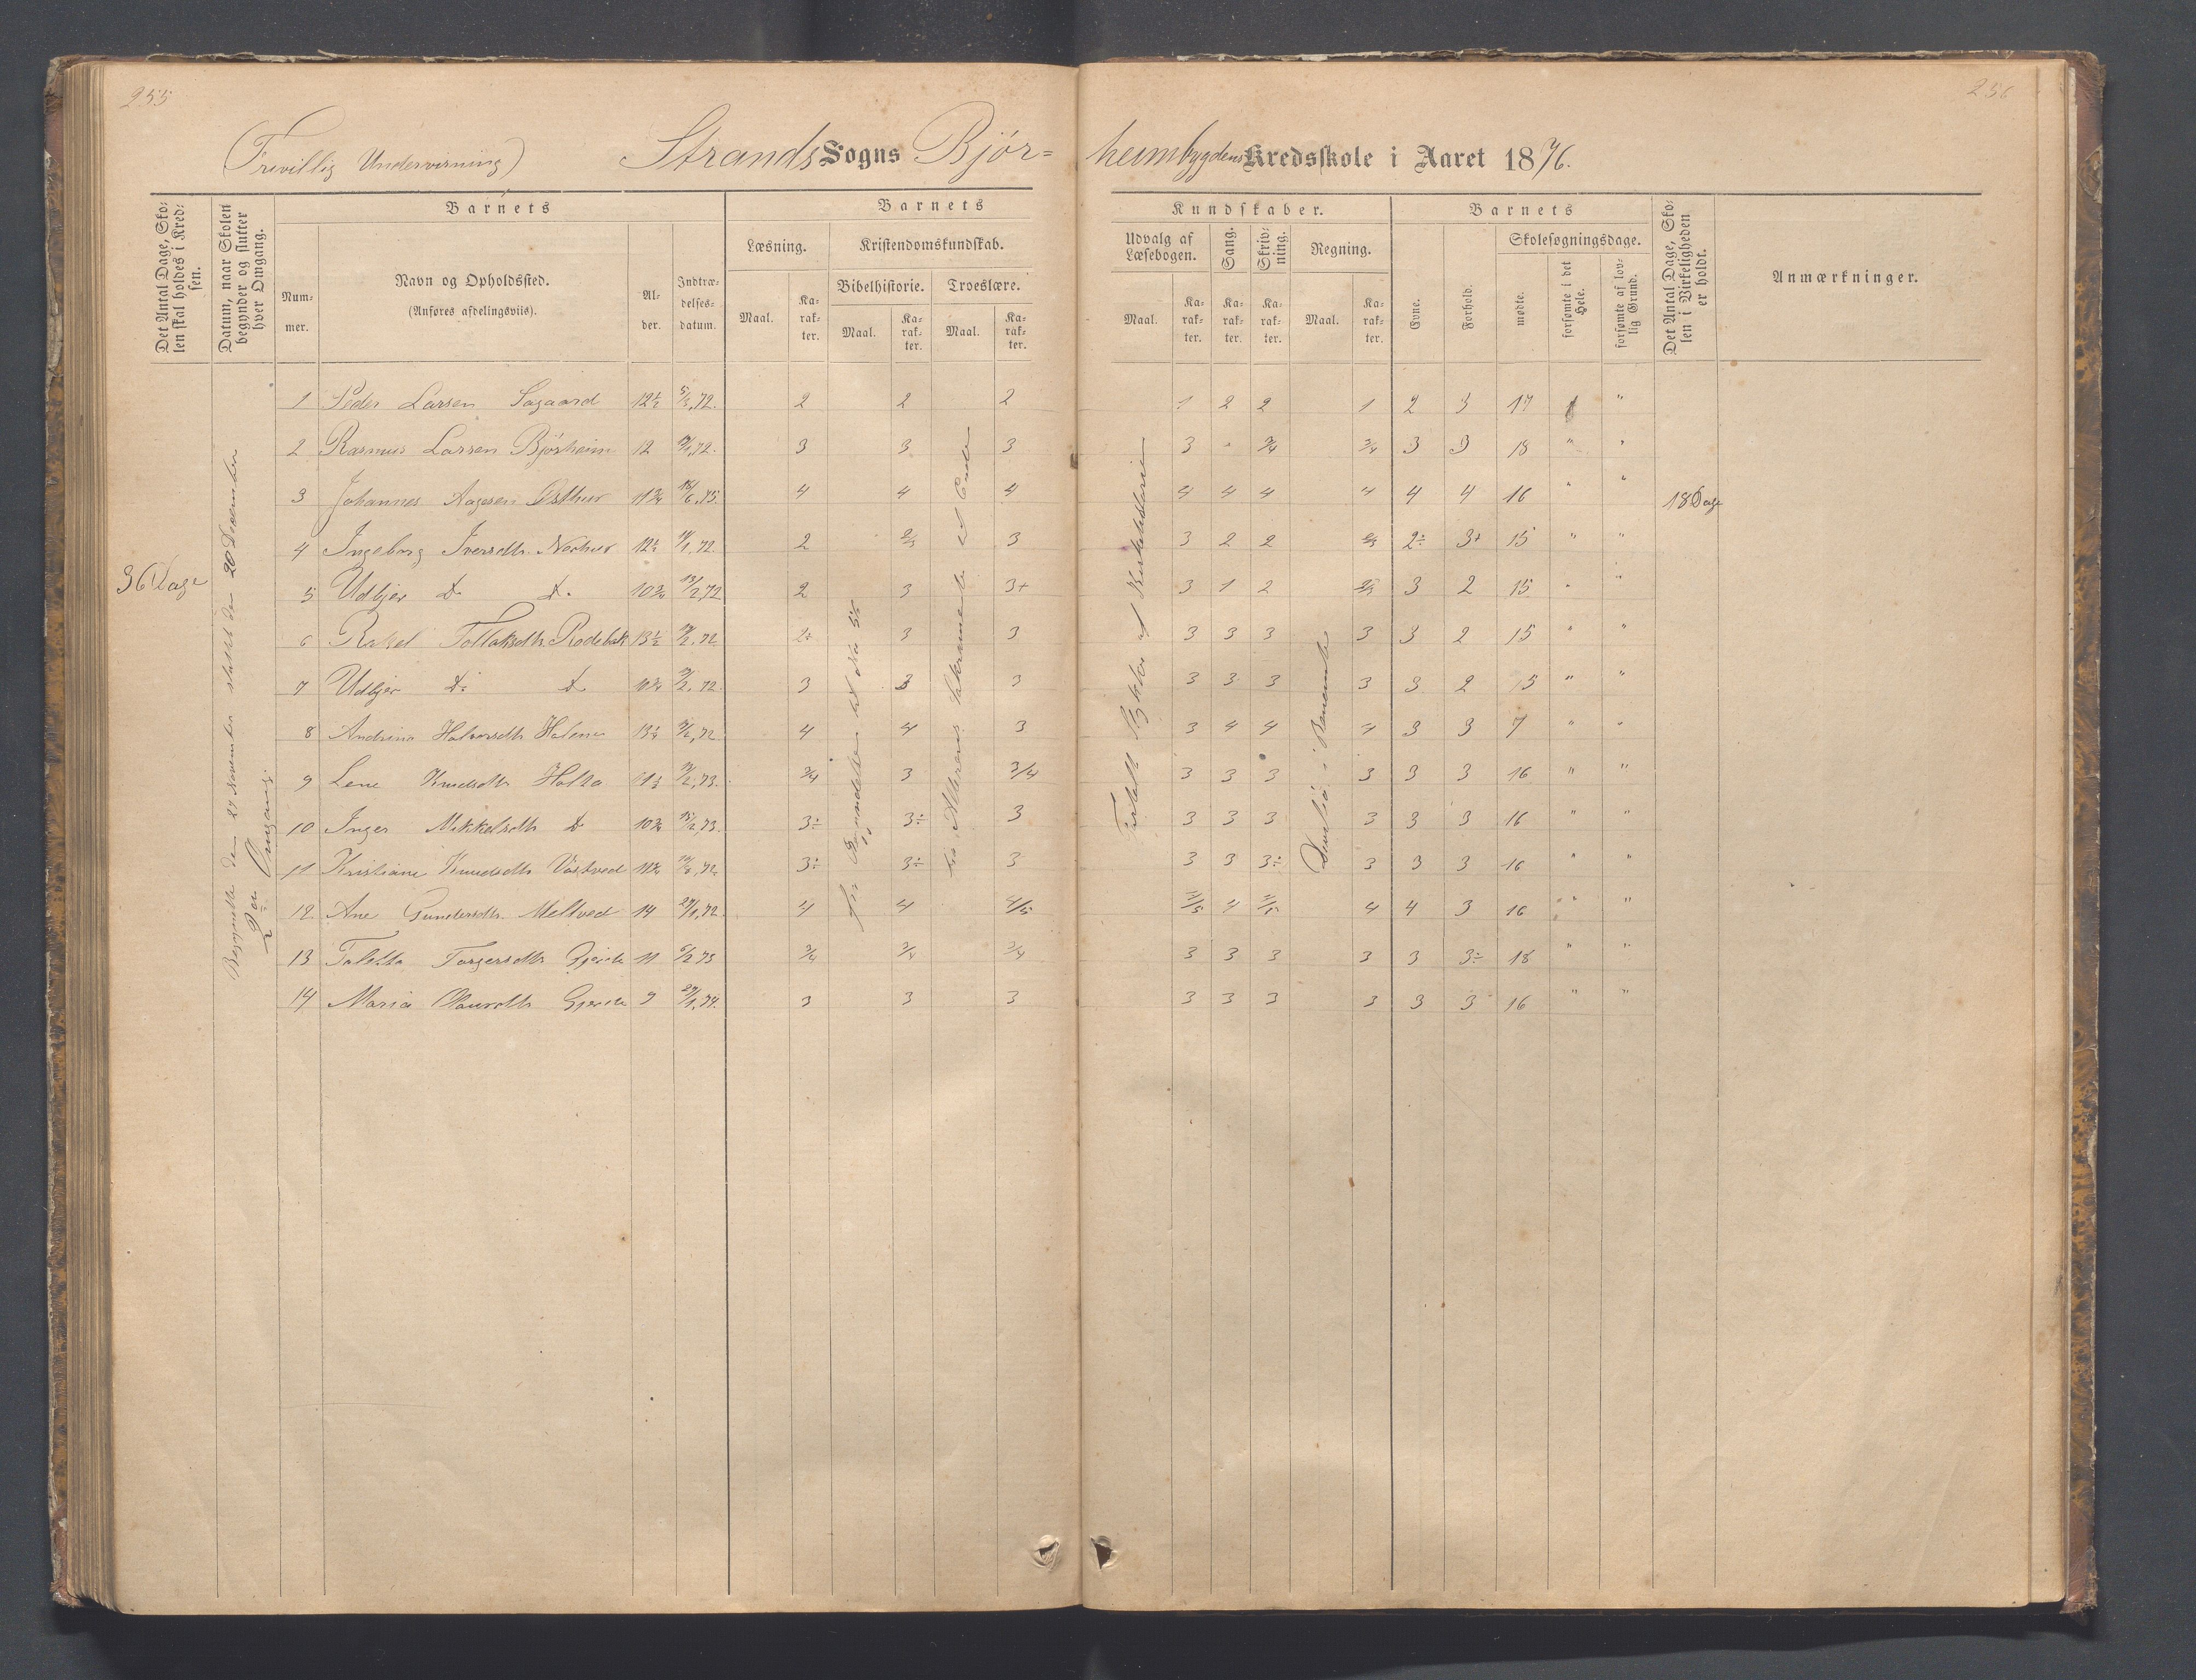 255
256
(Frivillig Undervisning) Strands Sogns Bjór=
heimbygdens Kredsskole i Aaret 1876.
Det Antal Dage, Skolen skal holdes i Kredsen.
Datum, naar Skolen begynder og slutter hver Omgang.
Barnets
Nummer.
Navn og Opholdssted.
(Anføres afdelingsviis).
Alder.
Indtrædelsesdatum.
Barnets
Læsning.
Kristendomskundskab.
Bibelhistorie. Troeslære.
Maal. Karakter. Maal. Karakter. Maal. Karakter.
Kundskaber.
Udvalg af Læsebogen. Sang. Skrivning. Regning.
Maal. Karakter. Karakter. Karakter. Maal. Karakter.
Barnets
Evne. Forhold.
Skolesøgningsdage.
mødte. forsømte i det Hele. forsømte af lovlig Grund.
Det Antal Dage, Skolen i Virkeligheden er holdt.
Anmærkninger.
36 Dage
Begyndte den 27 November sluttet den 20 December
2den Omgang
1 Peder Larsen Sagaard 12½ 5/3,72. 2 2 2 1 2 2 1 2 3 17 1 "
2 Rasmus Larsen Bjórheim 12 72. 3 3 3 3 " 3/4 3/4 3 3 18 " "
3 Johannes Aagesen 11¾ 75. 4 4 4 4 4 4 4 4 4 16 " " 18 Dage
4 Ingeborg Iversdtr. 12½ 72. 2 2/3 3 3 2 2 2/3 2÷ 3+ 15 " "
5 Udbjør Do Do 10¾ 13/2,72 2 3 3+ 3 1 2 2/3 3 2 15 " "
6 Rakel Tollaksdtr. Rodebak 13½ 72. 2÷ 3 3 3 3 3 3 3 2 15 " "
7 Udbjør Do Do 10¾ 72. 3 3 3 3 3 3 3 3 2 15 " "
8 Andrina Halvorsdtr 72. 4 4 3 3 4 4 4 3 3 7 " "
9 Lene Knudsdtr Holta 11½ 73. 3/4 3 3/4 3 3 3 3 3 3 16 " "
10 Inger Mikkelsdtr Do 10¾ 73. 3÷ 3÷ 3 3 3 3 3 3 3 16 " "
11 Kristiane Knudsdtr 11¾ 72. 3÷ 3÷ 3 3 3 3÷ 3 3 3 16 " "
12 Ane Gundersdtr. Meltved 14 29/1,72. 4 4 4/5 4 4 4 3 16 " "
13 Taletta Torgersdtr Gjerde 11 6/2 73 3/4 3/4 3/4 3 3 3 3 3 3÷ 18 " "
14 Maria Gjerde 9 74. 3 3 3 3 3 3 3 3 3 16 " "
Alterens Sakramente til Ende
Stykker af Kirkehistorien
i Benævnte